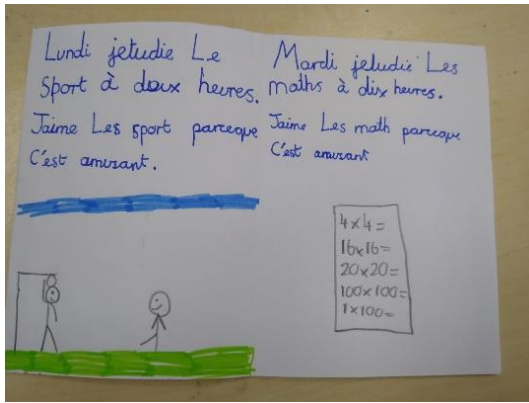 Lundi jetudie Le
Sport à deux heures.
Jaime Les sport parceque
C'est amusant.
Mardi jetudie Les
maths à dix heures.
Jaime Les math parceque
C'est amusant
4x4=
16x16=
20x20=
100x100=
1x100=